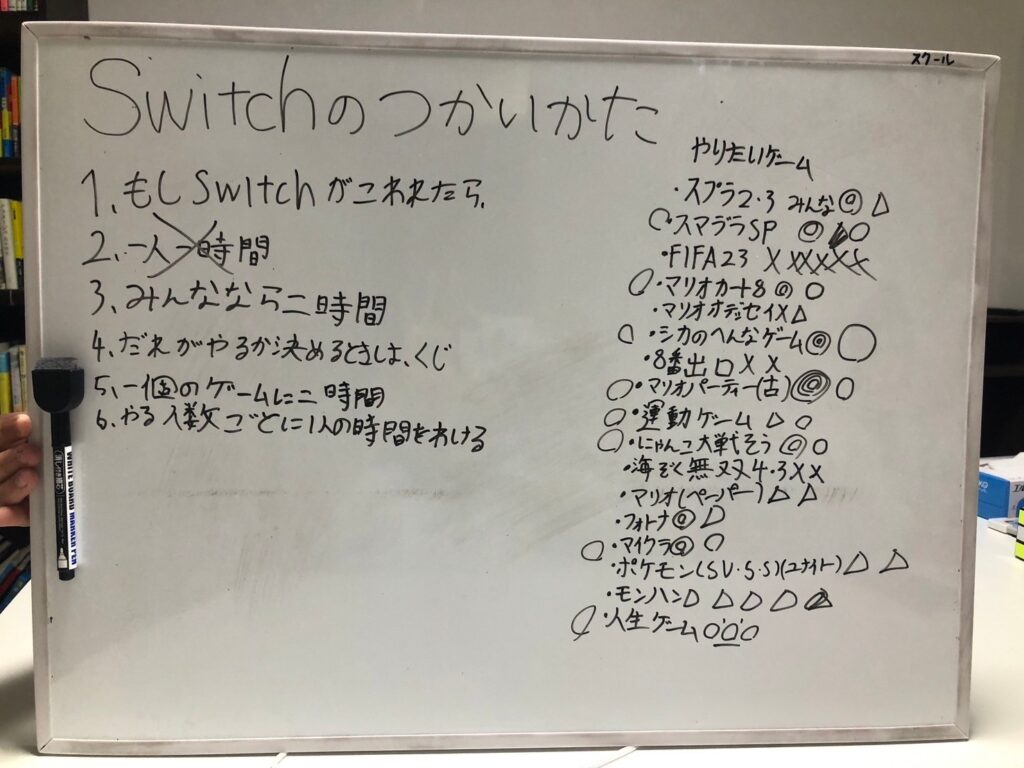 スクール
Switchのつかいかた
1. もしSwitchがこわれたら、
2. 一人一時間
3. みんなら二時間
4. だれがやるか決めるときは、くじ
5. 一個のゲームに二時間
6. やる人数ごとに1人の時間をわける
やりたいゲーム
・スプラ2・3 みんな◎ △
○・スマブラSP ◎ ○
・FIFA23 X X X X X X
○・マリオカート8 ◎ ○
・マリオオデッセイX△
○・シカのへんなゲーム◎ ○
・8番出口 X X
○・マリオパーティー(古)◎ ○
○・運動ゲーム △ ○
○・にゃんこ大戦そう ◎ ○
・海ぞく無双4・3 X X
・マリオ(ペーパー) △ △
・フォトナ◎ △
○・マイクラ◎ ○
・ポケモン(SV・S・S)(ユナイト) △ △
・モンハン△ △ △ △ △
○・人生ゲーム○○○
WHITE BOARD MARKER PEN